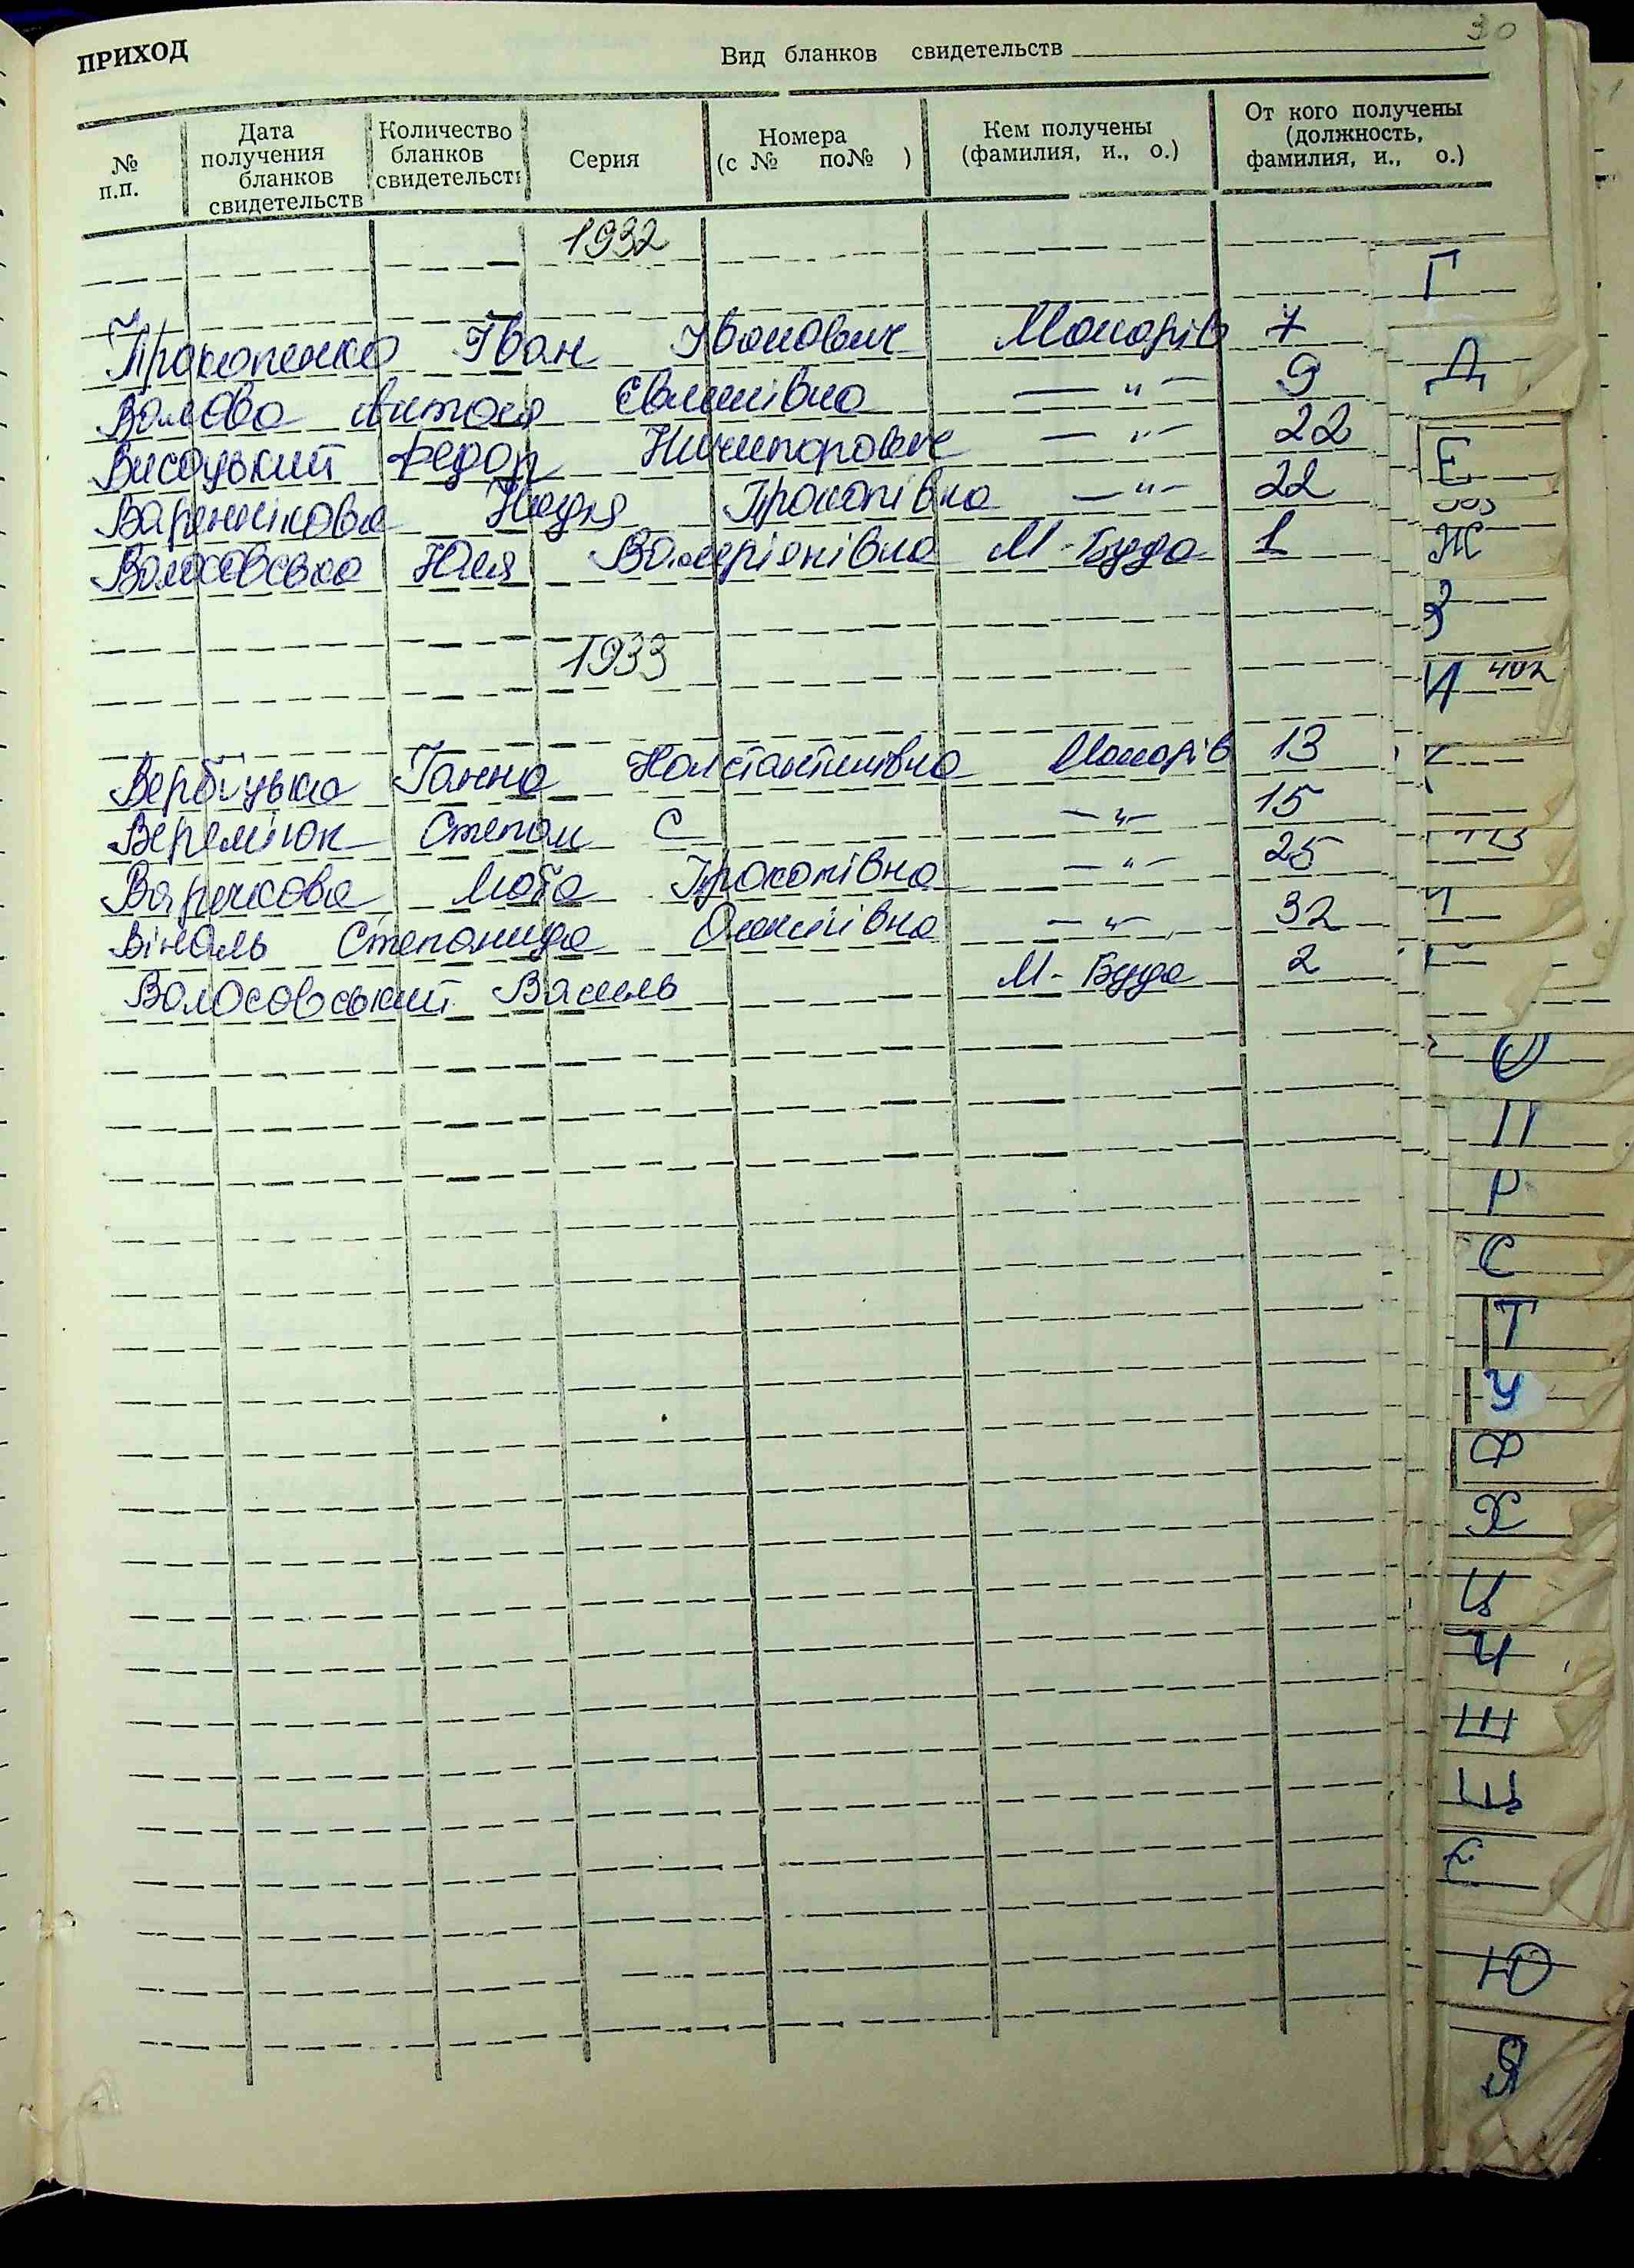 30
ПРИХОД Вид бланков свидетельств
№ п.п.
Дата получения бланков свидетельств
Количество бланков свидетельств
Серия
Номера (с № по№ )
Кем получены (фамилия, и., о.)
От кого получены (должность, фамилия, и., о.)
1932
Прокопенко Іван Іванович Макарів 7
Євлимпівна — " — 9
Висоцький Федор Ничипорович — " — 22
Вареннікова Надя Прокопівна — " — 22
Волосовська Юля Валеріанівна М-Буда 1
1933
Вербіцька Ганна Константинівна Макарів 13
Вереміюк Степан С — " — 15
Люба Прокопівна — " — 25
Віналь Степанида Олексіївна — " — 32
Волосовський Василь М-Буда 2
Г
Д
Е
Ж
З
И 402
О
П
Р
С
Т
У
Ф
Х
Ц
Ч
Ш
Щ
Є
Ю
Я